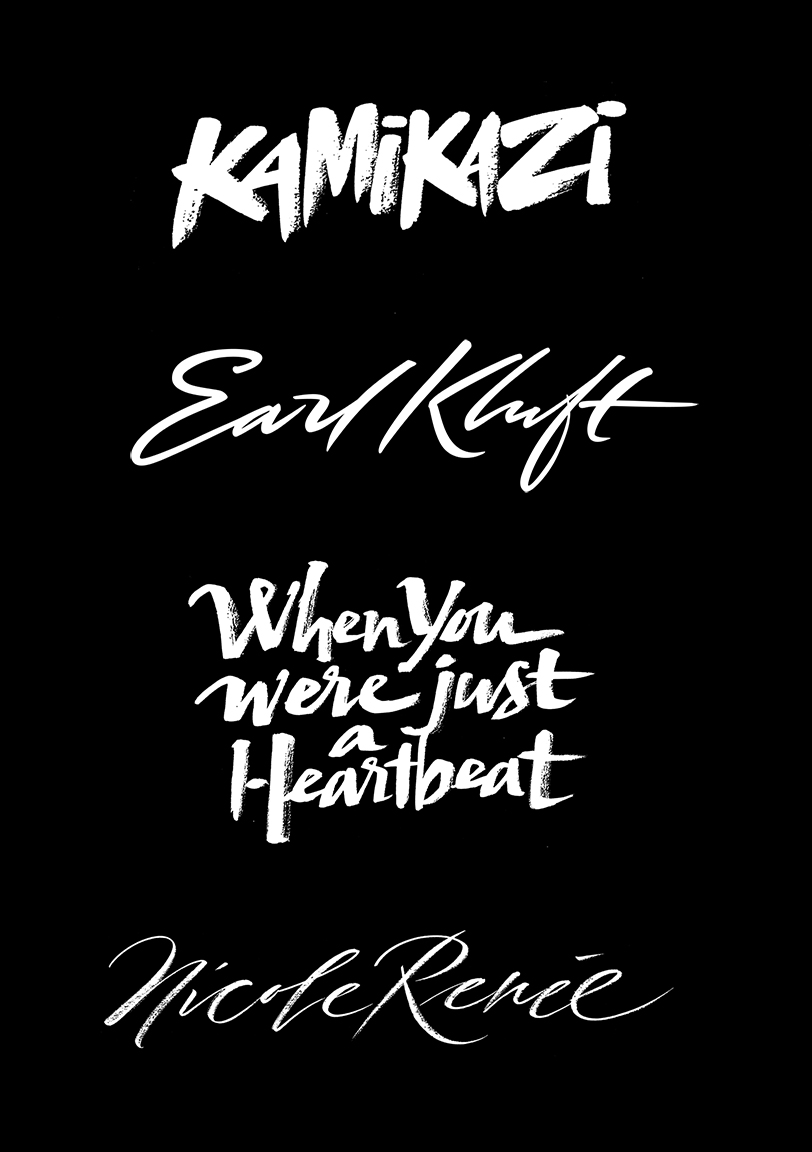 KAMiKAZi
Earl Kluft
When You
were just
a
Heartbeat
Nicole Renée